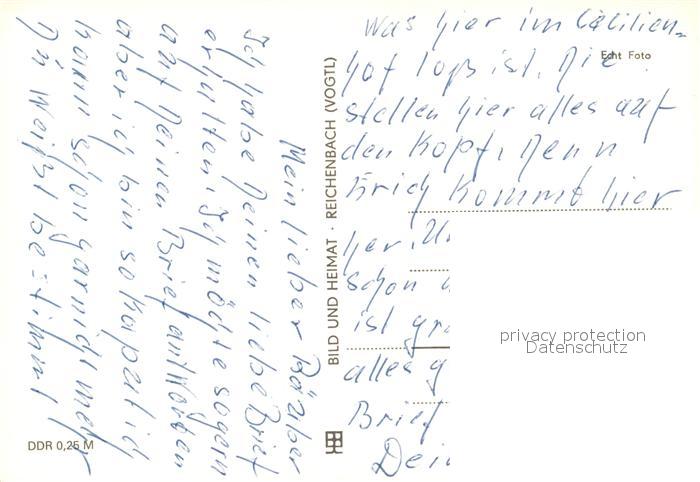 Mein lieber Bärber
Ich habe Deinen liebe Brief
erhalten. Ich möchte sogern
auf Deinen Brief antworten
aber ich bin so kaputt ich
kann schon garnicht mehr
Du Weißt bestimmt
was hier im Cäcilien=
hof loß ist. Die
stellen hier alles auf
den Kopf, Denn
Erich kommt hier
her.
schon
ist
alles
Brief
Echt Foto
BILD UND HEIMAT · REICHENBACH (VOGTL)
DDR 0,25 M
privacy protection
Datenschutz